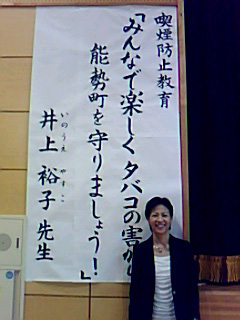 喫煙防止教育
「みんなで楽しくタバコの害から
能勢町を守りましょう！」
井上 裕子 先生
いのうえ やすこ